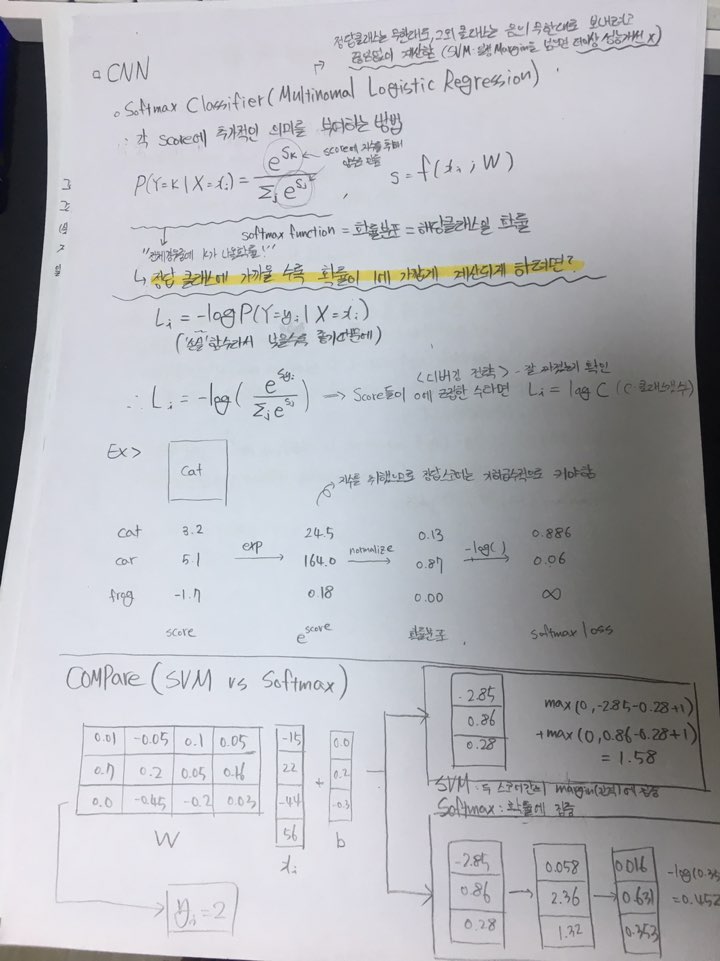 정답클래스는 무한대로, 그외 클래스는 음의 무한대로 보내려고
끊임없이 계산함 (SVM: 일정 Margin을 넘으면 더이상 성능개선 x)
□ CNN
o Softmax Classifier (Multinomal Logistic Regression)
: 각 score에 추가적인 의미를 부여하는 방법
P(Y=k | X=xᵢ) = e^{s_k} / Σⱼ e^{sⱼ} , s = f(xᵢ ; W)
score에 지수를 취해
softmax function = 확률분포 = 해당클래스일 확률
"전체경우중에 k가 나올확률!"
↳ 정답 클래스에 가까울 수록 확률이 1에 가깝게 계산되게 하려면?
Lᵢ = -log P(Y=yᵢ | X=xᵢ)
('손실'함수라서 낮을수록 좋기때문에)
<디버깅 전략> - 잘 짜졌는지 확인
∴ Lᵢ = -log( e^{s_{yᵢ}} / Σⱼ e^{sⱼ} ) → Score들이 0에 근접한 수라면 Lᵢ = log C (C: 클래스갯수)
Ex>
cat
지수를 취했으므로 정답스코어는 기하급수적으로 커야함
cat 3.2 24.5 0.13 0.886
car 5.1 exp → 164.0 normalize → 0.87 -log( ) → 0.06
frog -1.7 0.18 0.00 ∞
score e^score 확률분포 softmax loss
COMPare (SVM vs Softmax)
0.01 -0.05 0.1 0.05
0.7 0.2 0.05 0.16
0.0 -0.45 -0.2 0.03
W
-15
22
-44
56
xᵢ
+
0.0
0.2
-0.3
b
yᵢ = 2
-2.85
0.86
0.28
max(0, -2.85-0.28+1)
+max(0, 0.86-0.28+1)
= 1.58
SVM : 두 스코어간의 margin(간격)에 집중
Softmax : 확률에 집중
-2.85 0.058 0.016
0.86 → 2.36 → 0.631
0.28 1.32 0.353
-log(0.35
=0.452